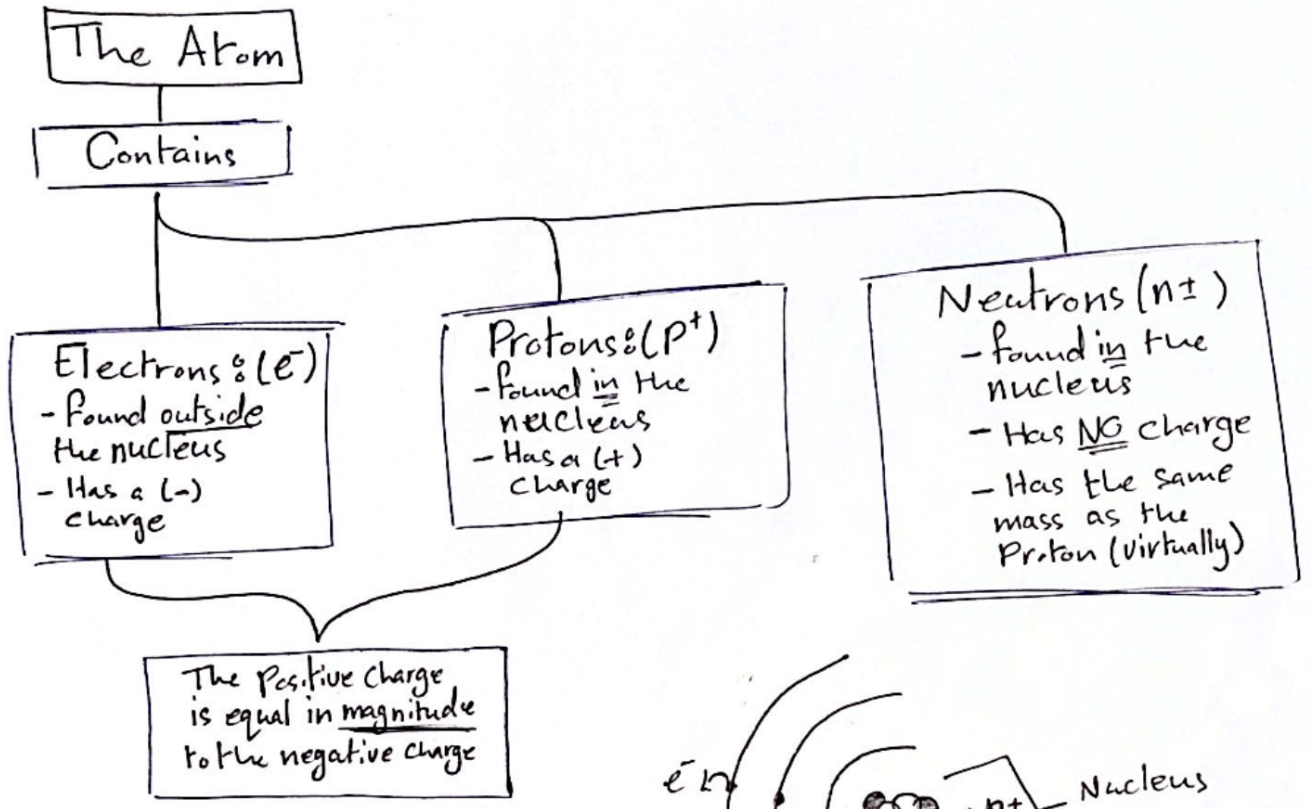 The Atom
Contains
Electrons: (e⁻)
- Found outside
the nucleus
- Has a (-)
charge
Protons: (P⁺)
- found in the
nucleus
- Has a (+)
charge
Neutrons (n±)
- found in the
nucleus
- Has NO charge
- Has the same
mass as the
Proton (virtually)
The Positive Charge
is equal in magnitude
to the negative charge
e⁻
Nucleus
n±